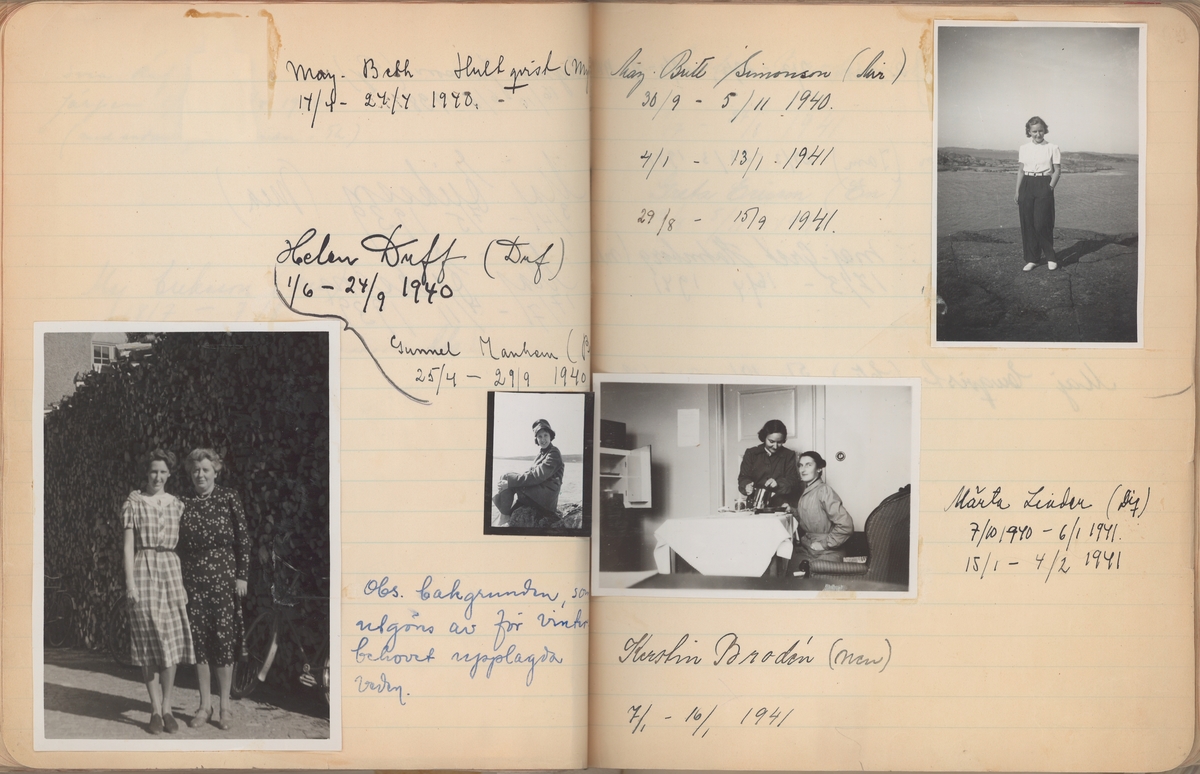 May-Beth Hultqvist (My
17/4 - 27/7 1940. -
Helen Duff (Duf)
1/6 - 24/9 1940
Gunnel Manhem (
25/4 - 29/9 1940
Obs. bakgrunden, so
utgöns av för vinter
behovet upplagda
veden.
Maj-Britt Simonson (Mir)
30/9 - 5/11 1940.
4/1 - 13/1 1941
29/8 - 15/9 1941.
Märta Linder (Dij)
7/10 1940 - 6/1 1941.
15/1 - 4/2 1941
Kerstin Brodén (nen)
7/1 - 16/1 1941